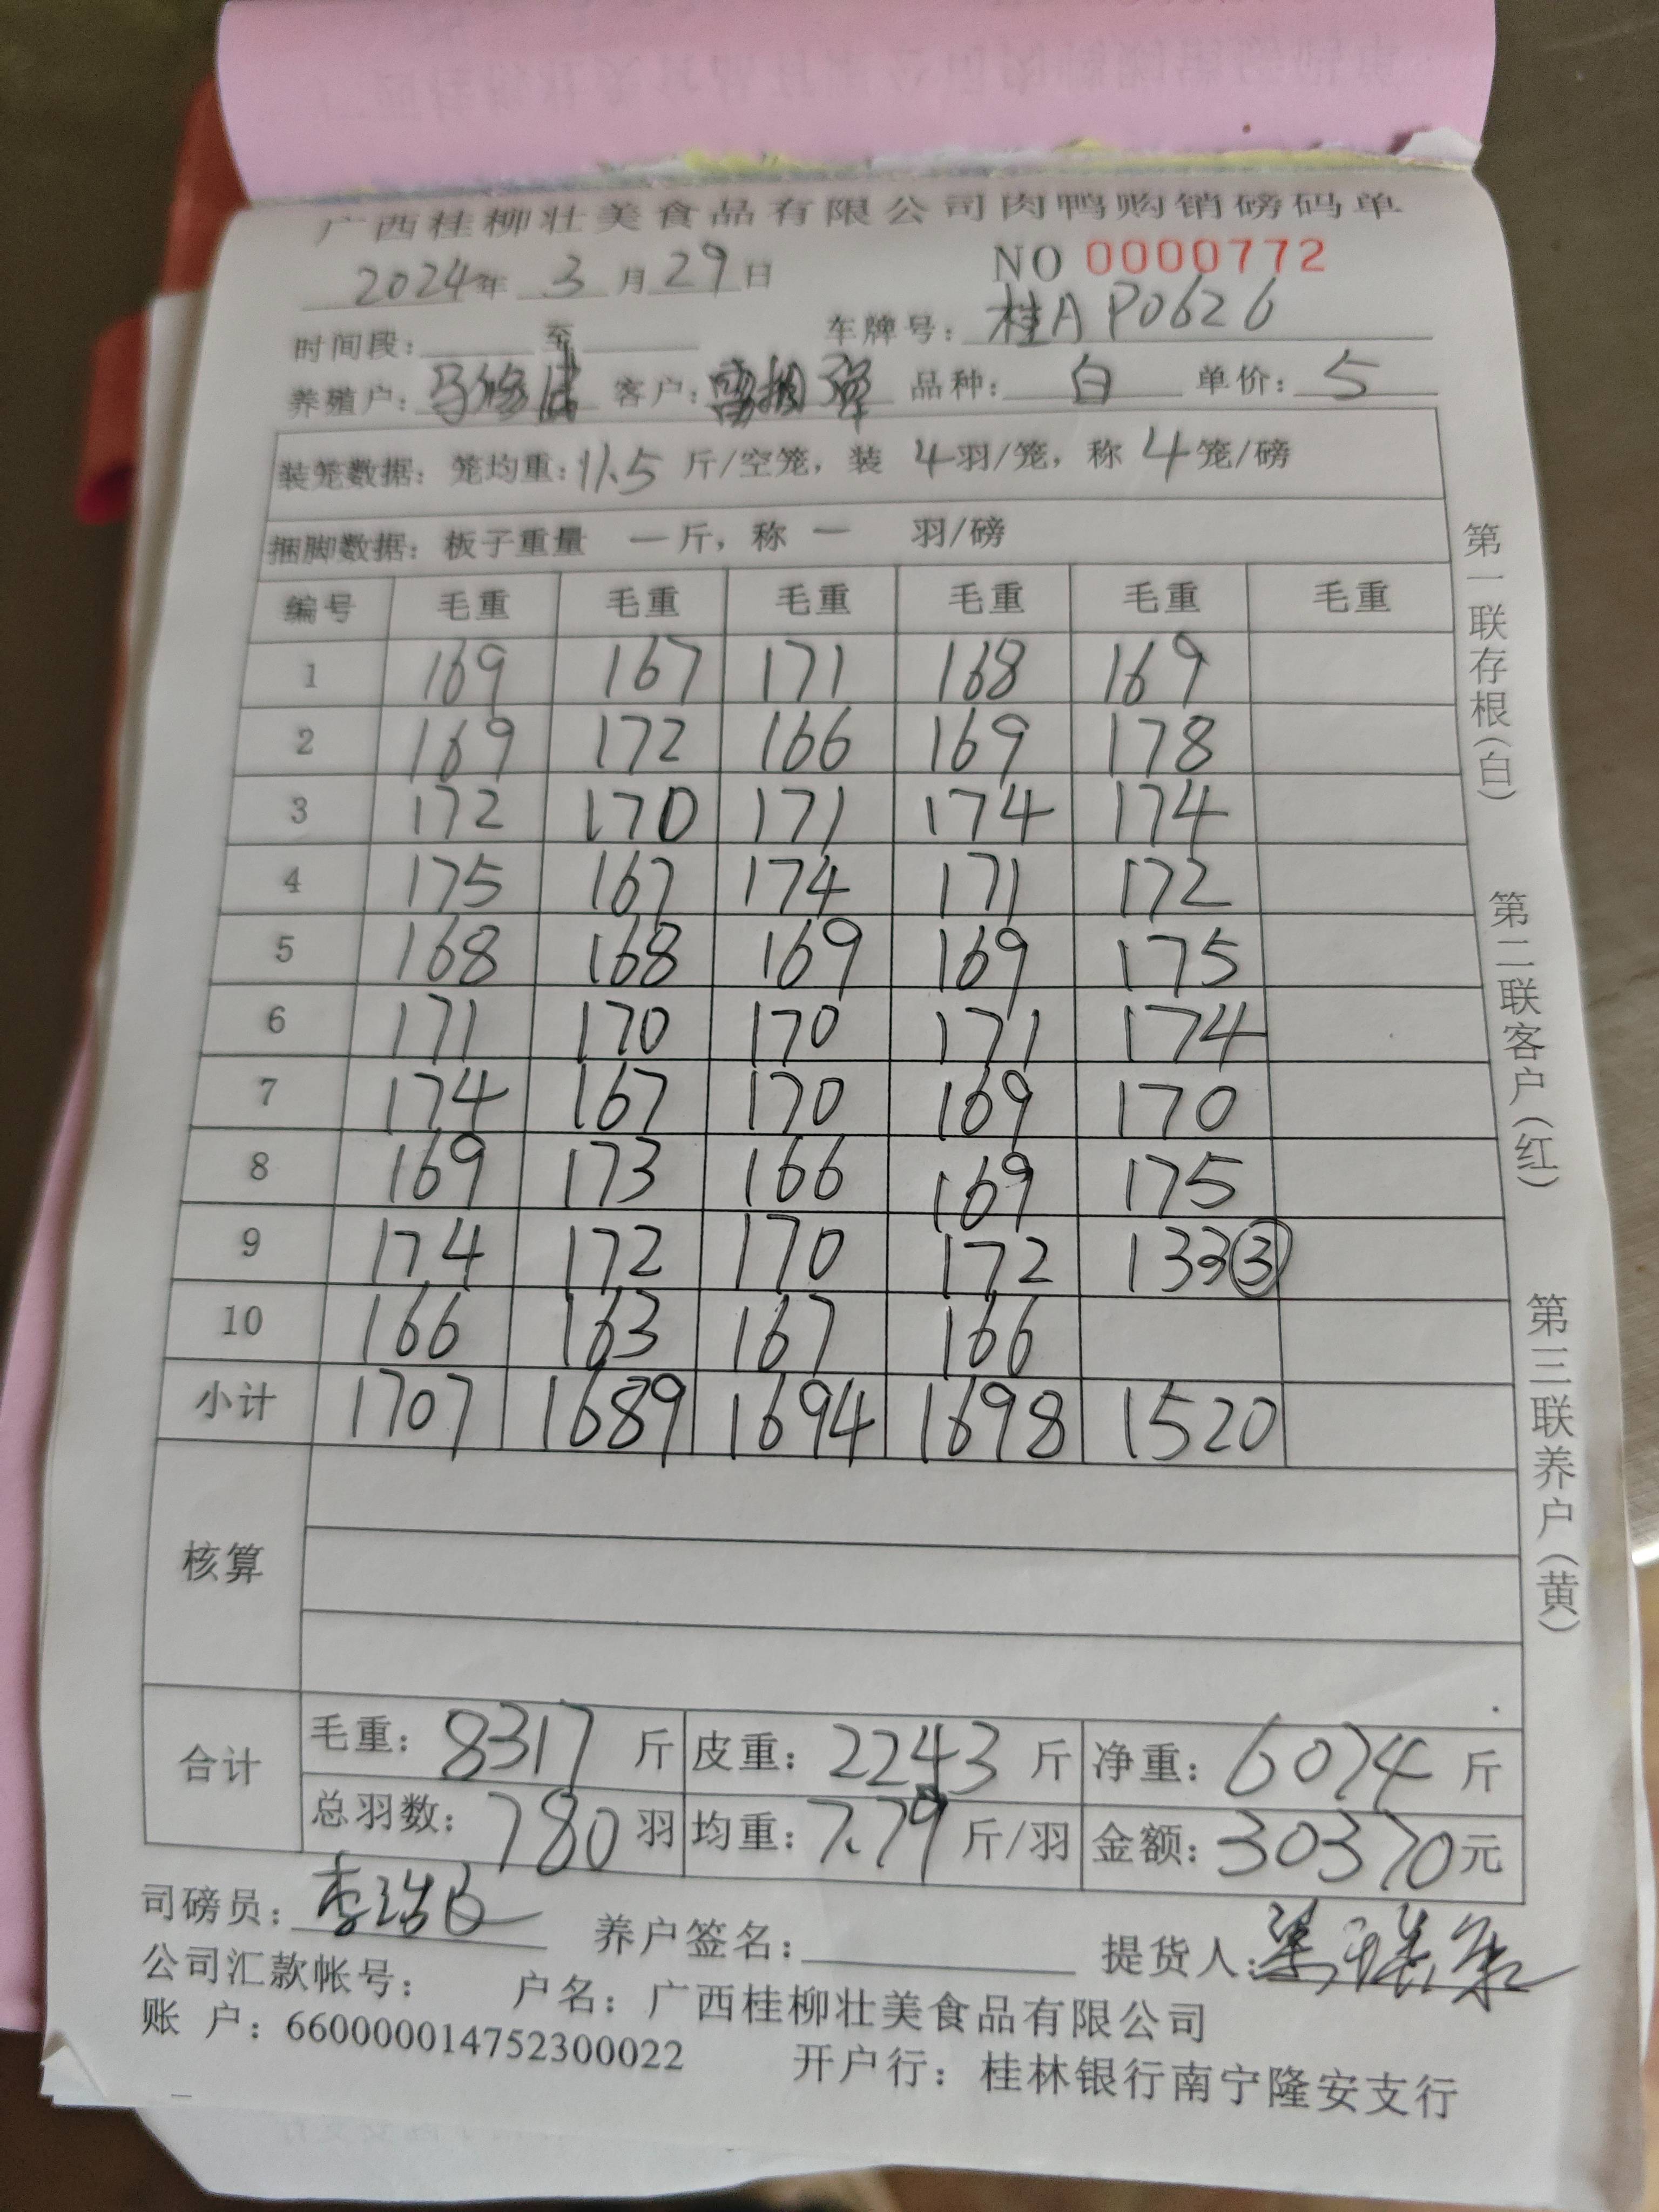 广西桂柳壮美食品有限公司肉鸭购销磅码单
2024年 3月29日 NO 0000772
时间段: 至 车牌号: 桂AP0626
养殖户: 客户: 品种: 白 单价: 5
装笼数据: 笼均重: 11.5 斤/空笼, 装 4羽/笼, 称 4笼/磅
捆脚数据: 板子重量 一斤, 称 一 羽/磅
编号 毛重 毛重 毛重 毛重 毛重 毛重
1 169 167 171 168 169
2 169 172 166 169 178
3 172 170 171 174 174
4 175 167 174 171 172
5 168 168 169 169 175
6 171 170 170 171 174
7 174 167 170 169 170
8 169 173 166 169 175
9 174 172 170 172 133③
10 166 163 167 166
小计 1707 1689 1694 1698 1520
核算
合计 毛重: 8317 斤 皮重: 2243 斤 净重: 6074 斤
总羽数: 780羽 均重: 7.79 斤/羽 金额: 30370元
司磅员: 养户签名: 提货人:
公司汇款帐号: 户名: 广西桂柳壮美食品有限公司
账 户: 660000014752300022 开户行: 桂林银行南宁隆安支行
第一联存根(白) 第二联客户(红) 第三联养户(黄)